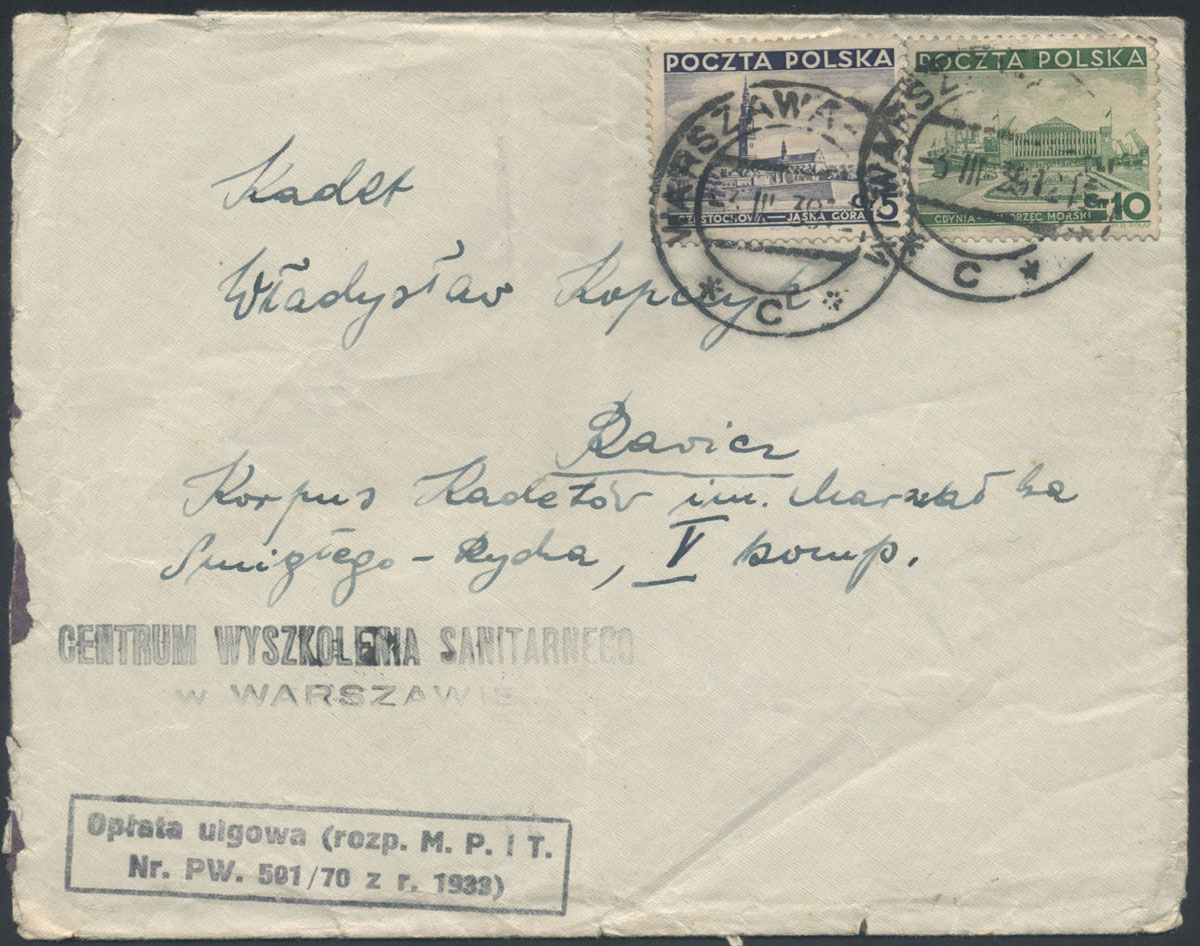 POCZTA POLSKA
POCZTA POLSKA
WARSZAWA
WARSZAWA
III
III
Gr 5
Gr 10
CZĘSTOCHOWA — JASNA GÓRA
GDYNIA — DWORZEC MORSKI
* C *
* C *
Kadet
Władysław Kopczyk
Rawicz
Korpus Kadetów im. Marszałka
Śmigłego-Rydza, V komp.
CENTRUM WYSZKOLENIA SANITARNEGO
w WARSZAWIE
Opłata ulgowa (rozp. M. P. i T.
Nr. PW. 501/70 z r. 1933)